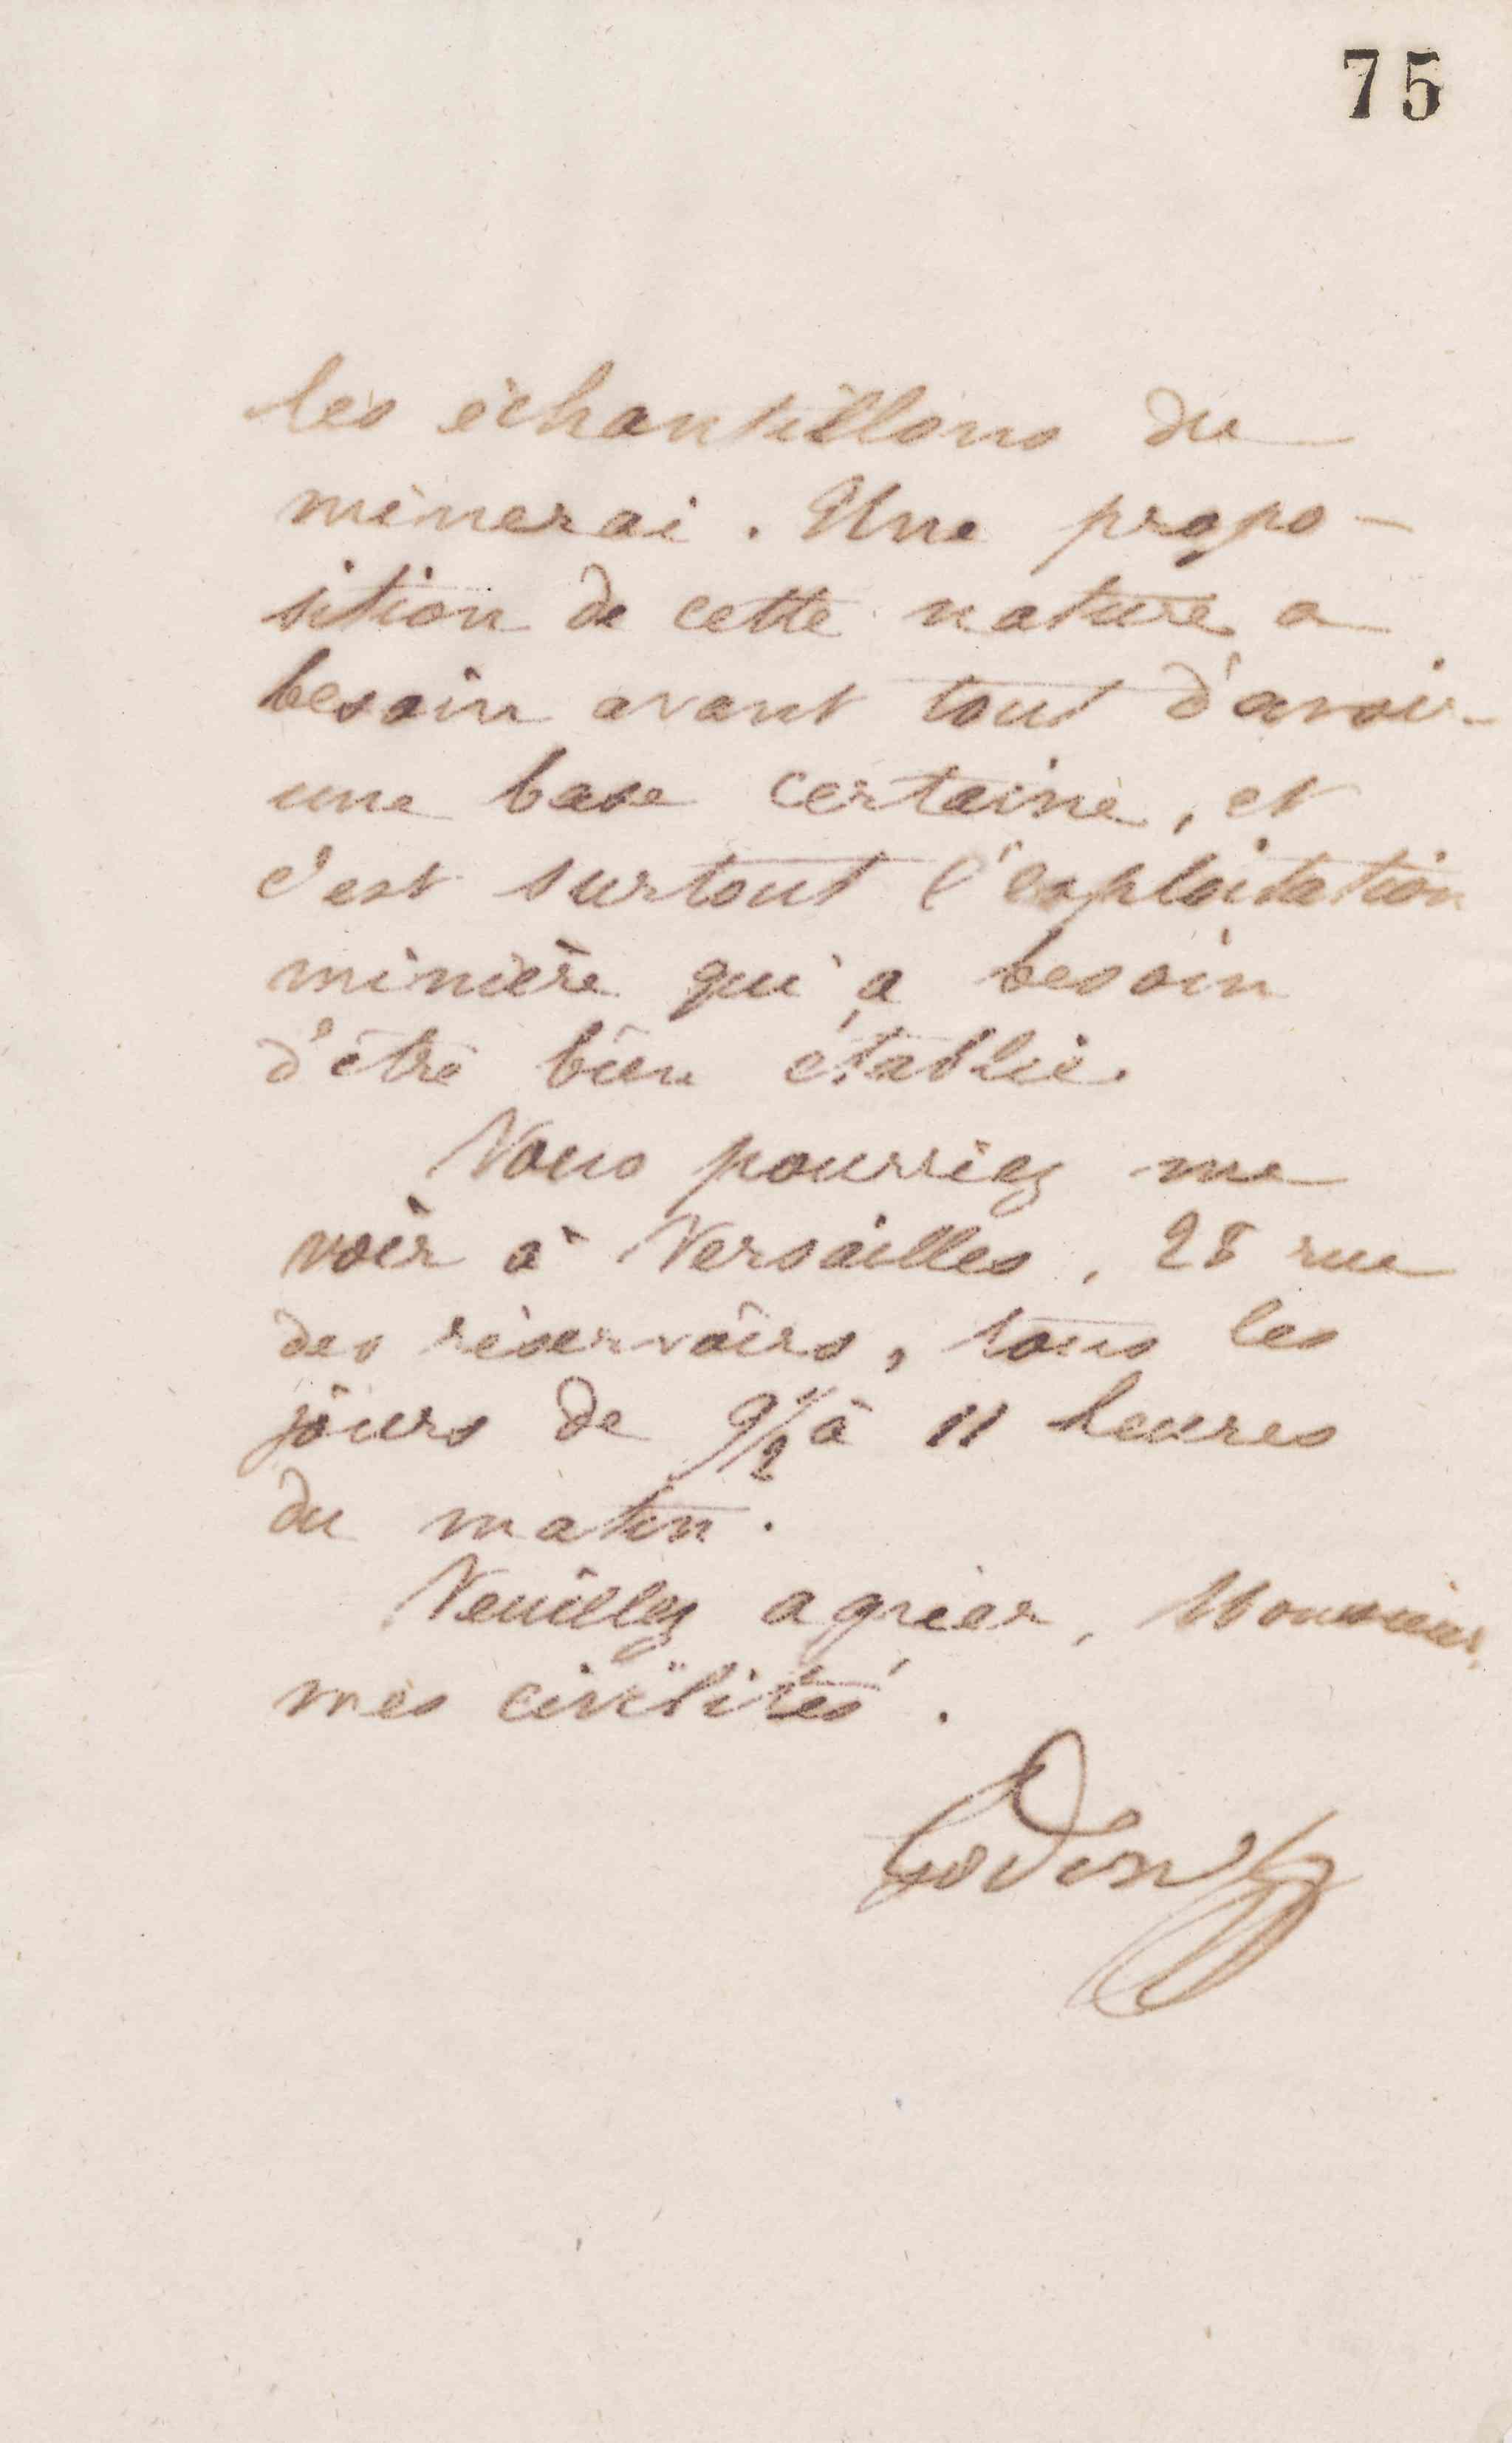 75
les échantillons du
minerai. Une propo-
sition de cette nature a
besoin avant tout d'avoir
une base certaine, et
c'est surtout l'exploitation
minière qui a besoin
d'être bien établie.
Vous pourriez me
voir à Versailles, 28 rue
des réservoirs, tous les
jours de 9 1/2 à 11 heures
du matin.
Veuillez agréer, Monsieur,
mes civilités.
Godin